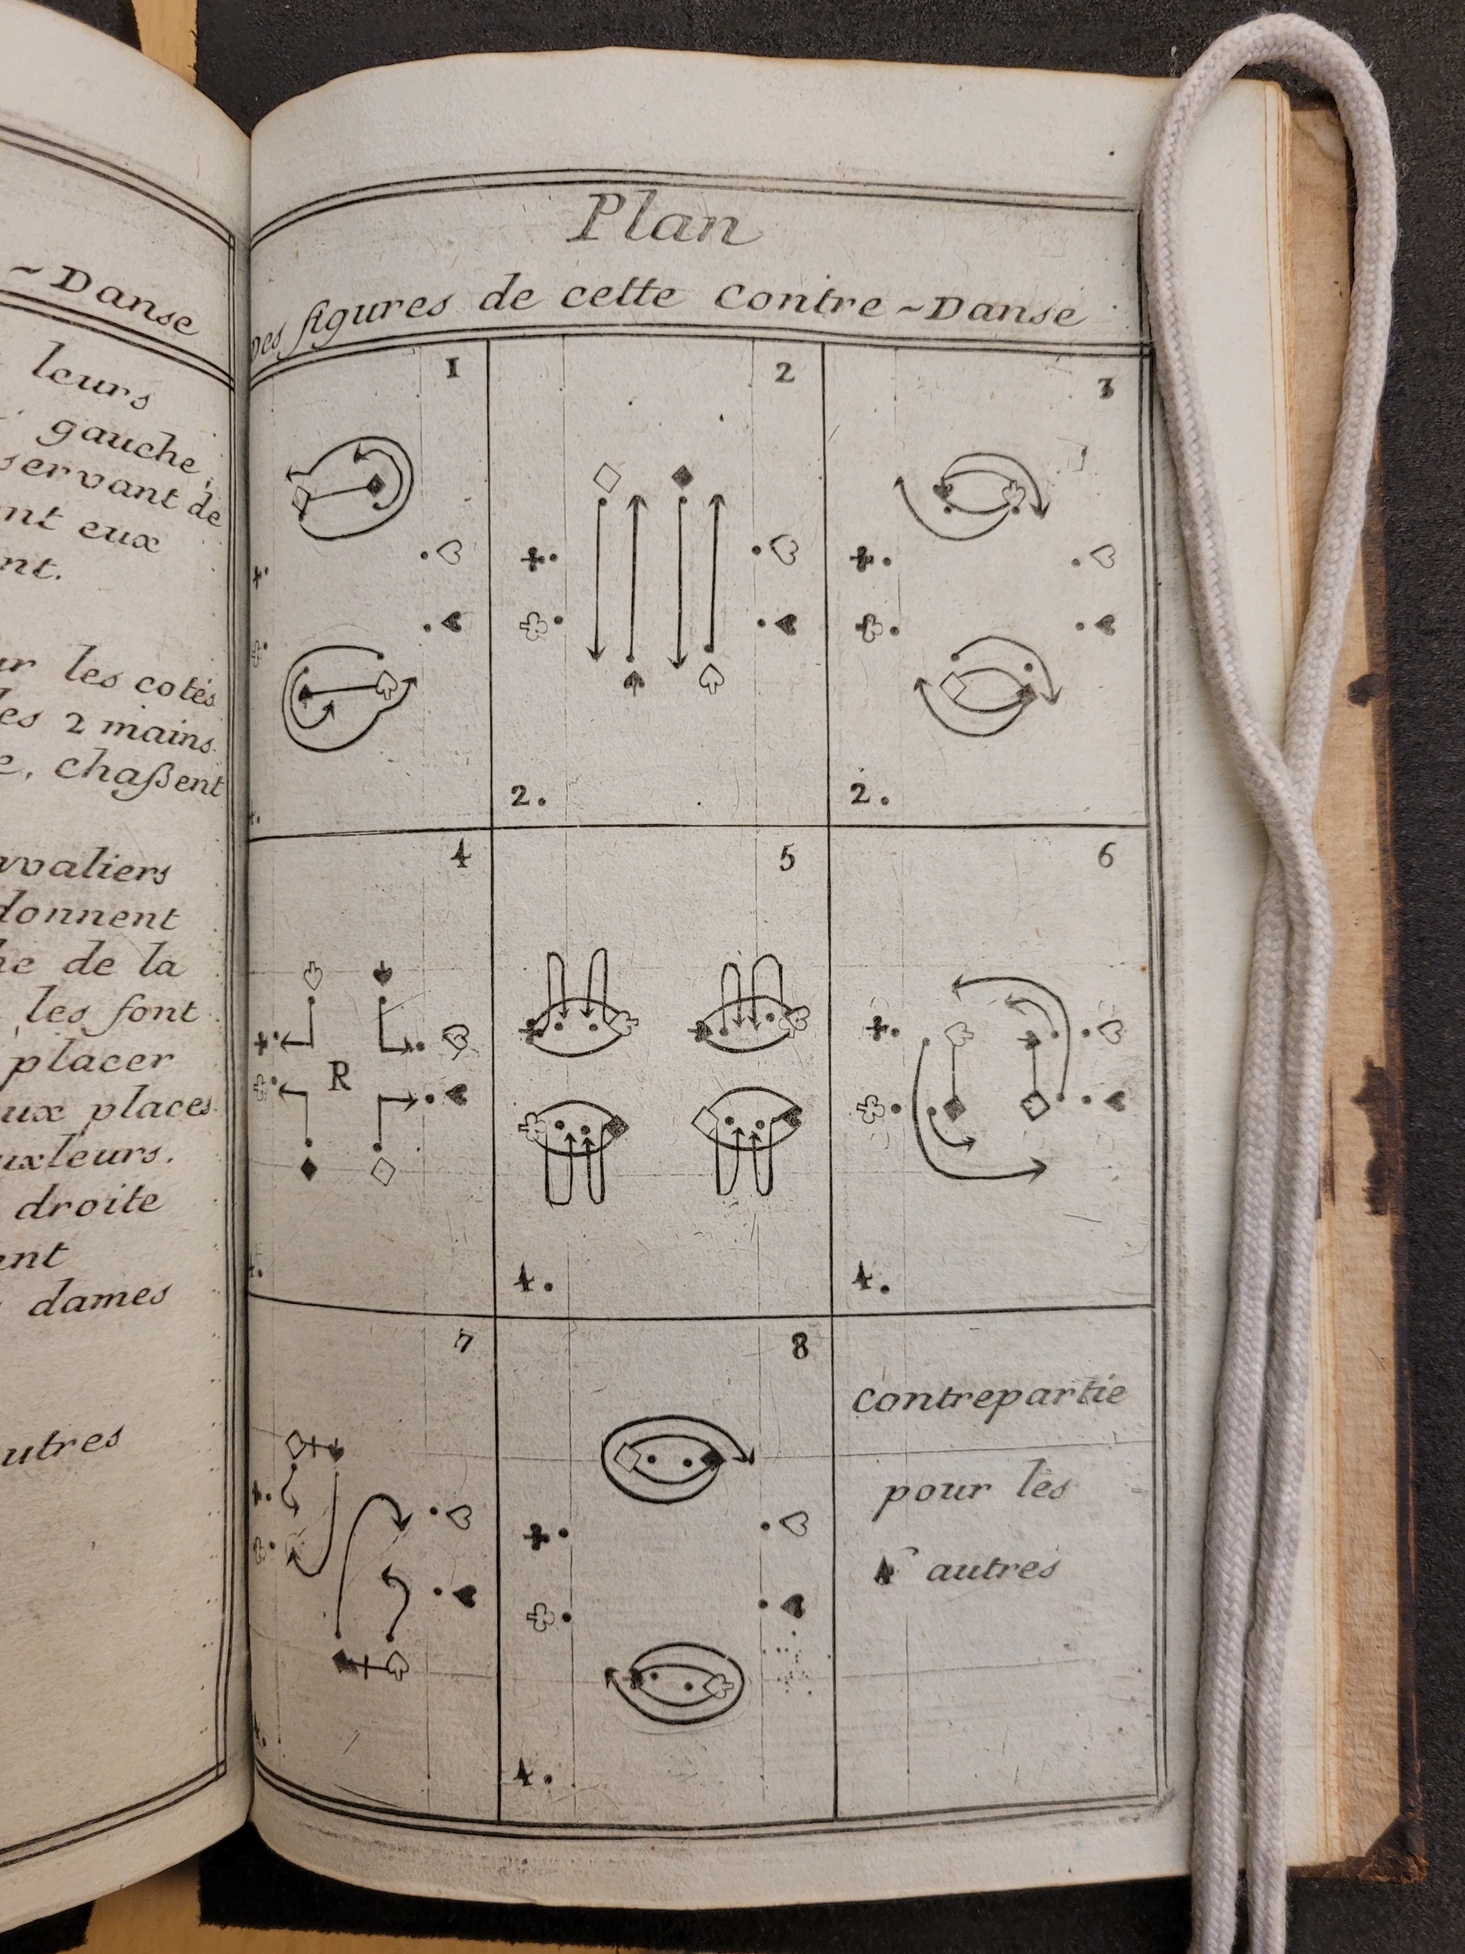 ~Danse
leurs
gauche,
servant de
nt eux
nt.
ur les cotés
les 2 mains.
e, chaßent
avaliers
donnent
he de la
les font
placer
aux places
uxleurs.
droite
ent
dames
utres
Plan
Des figures de cette Contre~Danse
1
2
3
2.
2.
4
5
6
R
4.
4.
4.
7
8
4.
Contrepartie
pour les
4 autres